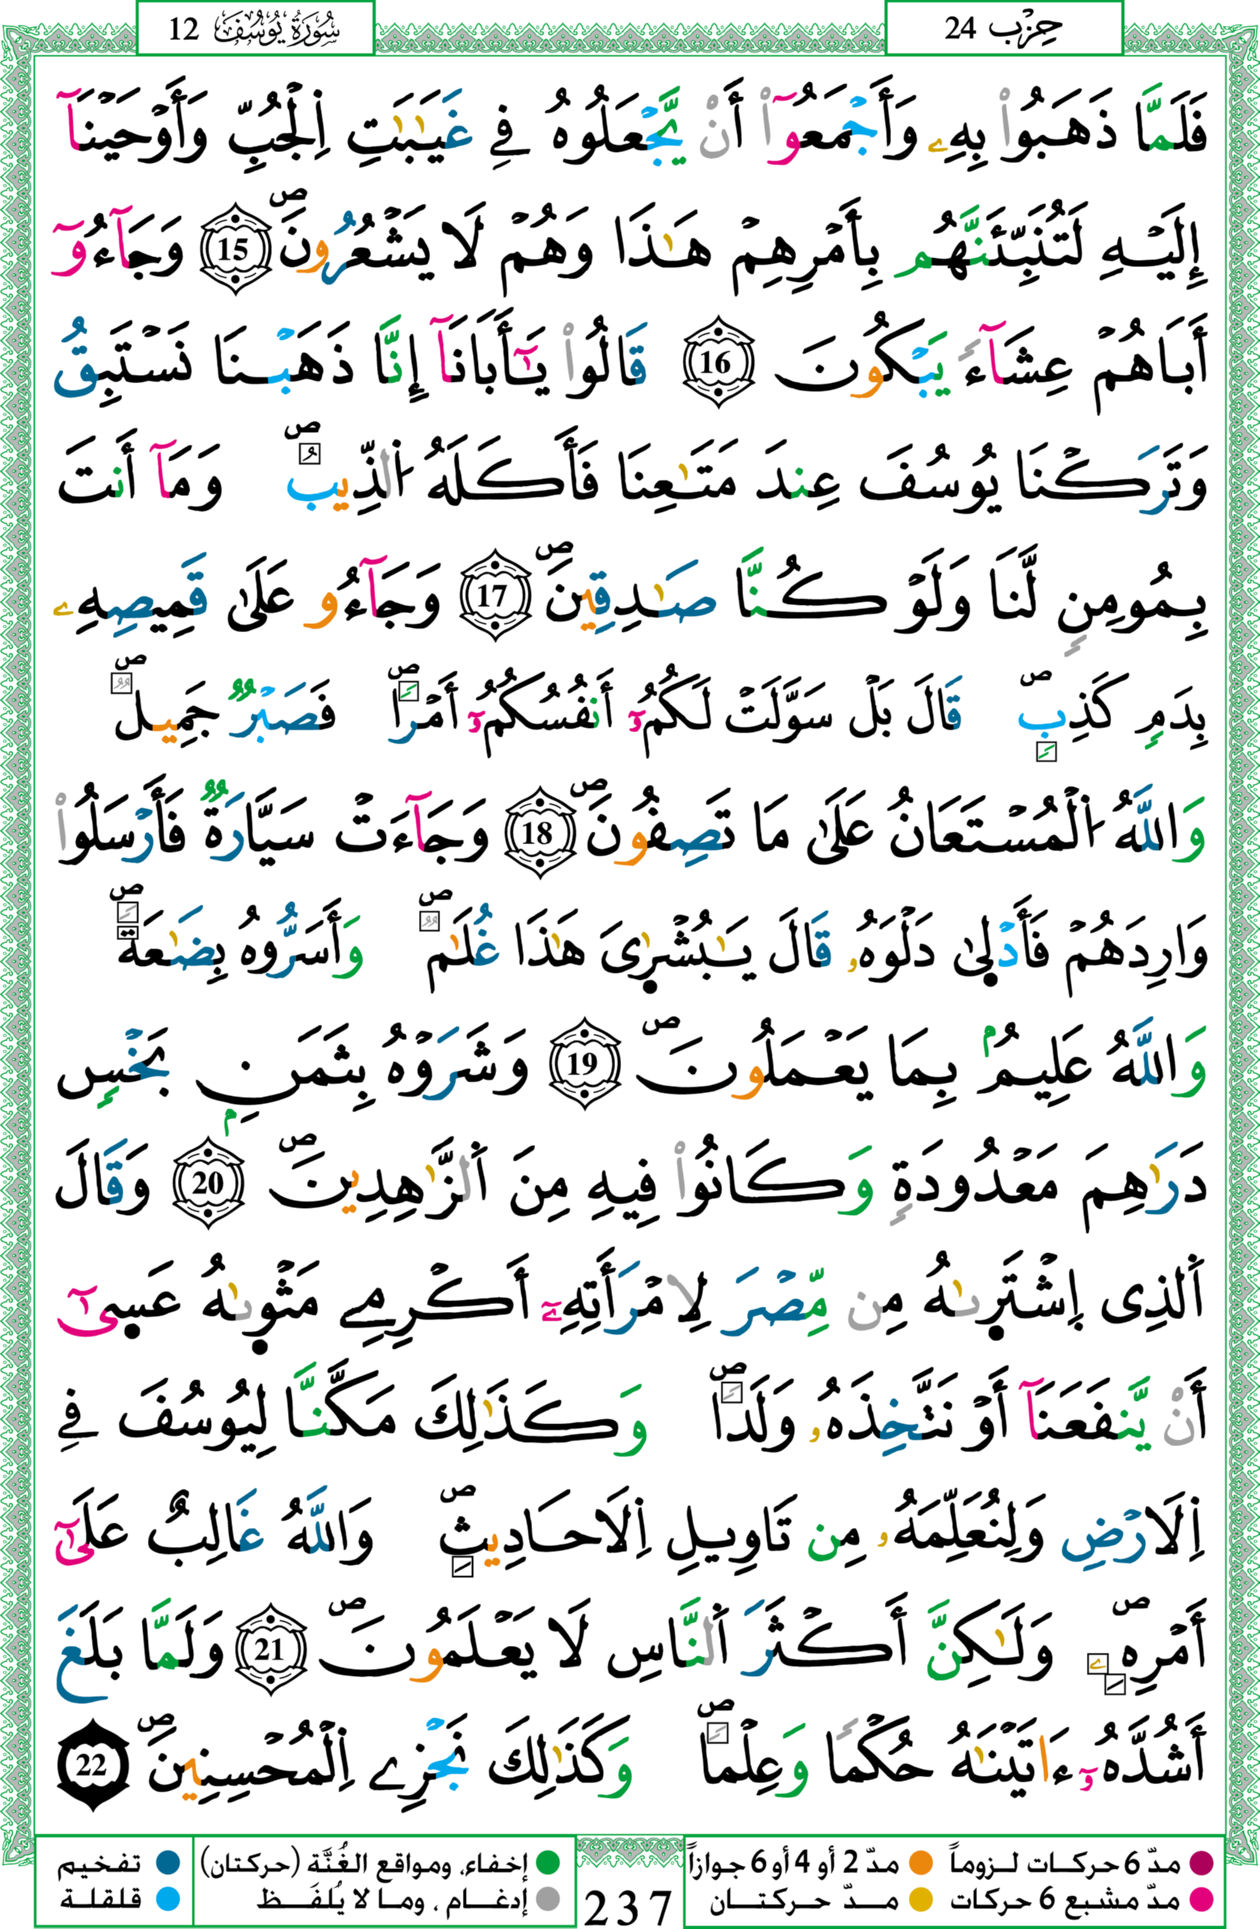 حِزْب 24
سُورَةُ يُوسُفَ 12
فَلَمَّا ذَهَبُواْ بِهِۦ وَأَجْمَعُوٓاْ أَنْ يَّجْعَلُوهُ فِے غَيَٰبَٰتِ اِ۬لْجُبِّ وَأَوْحَيْنَآ
إِلَيْهِ لَتُنَبِّئَنَّهُم بِأَمْرِهِمْ هَٰذَا وَهُمْ لَا يَشْعُرُونَۖ 15 وَجَآءُوٓ
أَبَاهُمْ عِشَآءَ يَبْكُونَ 16 قَالُواْ يَٰٓأَبَانَآ إِنَّا ذَهَبْنَا نَسْتَبِقُ
وَتَرَكْنَا يُوسُفَ عِندَ مَتَٰعِنَا فَأَكَلَهُ اُ۬لذِّيبُۖ وَمَآ أَنتَ
بِمُومِنٍ لَّنَا وَلَوْ كُنَّا صَٰدِقِينَۖ 17 وَجَآءُو عَلَىٰ قَمِيصِهِۦ
بِدَمٍ كَذِبٍۖ قَالَ بَلْ سَوَّلَتْ لَكُمُۥٓ أَنفُسُكُمُۥٓ أَمْراٗۖ فَصَبْرٌ جَمِيلٌۖ
وَاللَّهُ اُ۬لْمُسْتَعَانُ عَلَىٰ مَا تَصِفُونَۖ 18 وَجَآءَتْ سَيَّارَةٌ فَأَرْسَلُواْ
وَارِدَهُمْ فَأَدْلٜىٰ دَلْوَهُۥ قَالَ يَٰبُشْرٜىَٰ هَٰذَا غُلَٰمٌۖ وَأَسَرُّوهُ بِضَٰعَةٗۖ
وَاللَّهُ عَلِيمُۢ بِمَا يَعْمَلُونَۖ 19 وَشَرَوْهُ بِثَمَنِۢ بَخْسٍ
دَرَٰهِمَ مَعْدُودَةٍ وَكَانُواْ فِيهِ مِنَ اَ۬لزَّٰهِدِينَۖ 20 وَقَالَ
اَ۬لذِى اِ۪شْتَرٜىٰهُ مِن مِّصْرَ لِامْرَأَتِهِۦٓ أَكْرِمِے مَثْوٜىٰهُ عَسٜىٰٓ
أَنْ يَّنفَعَنَآ أَوْ نَتَّخِذَهُۥ وَلَداٗۖ وَكَذَٰلِكَ مَكَّنَّا لِيُوسُفَ فِے
اِ۬لَارْضِ وَلِنُعَلِّمَهُۥ مِن تَاوِيلِ اِ۬لَاحَادِيثِۖ وَاللَّهُ غَالِبٌ عَلَىٰٓ
أَمْرِهِۦۖ وَلَٰكِنَّ أَكْثَرَ اَ۬لنَّاسِ لَا يَعْلَمُونَۖ 21 وَلَمَّا بَلَغَ
أَشُدَّهُۥٓ ءَاتَيْنَٰهُ حُكْماً وَعِلْماٗۖ وَكَذَٰلِكَ نَجْزِے اِ۬لْمُحْسِنِينَۖ 22
مدّ 6 حركات لـزوماً مدّ 2 أو 4 أو 6 جوازاً
مدّ مشبع 6 حركات مدّ حركتان
237
إخفاء، ومواقع الغُنَّة (حركتان) تفخيم
إدغام ، وما لا يُلفَظ قلقلة